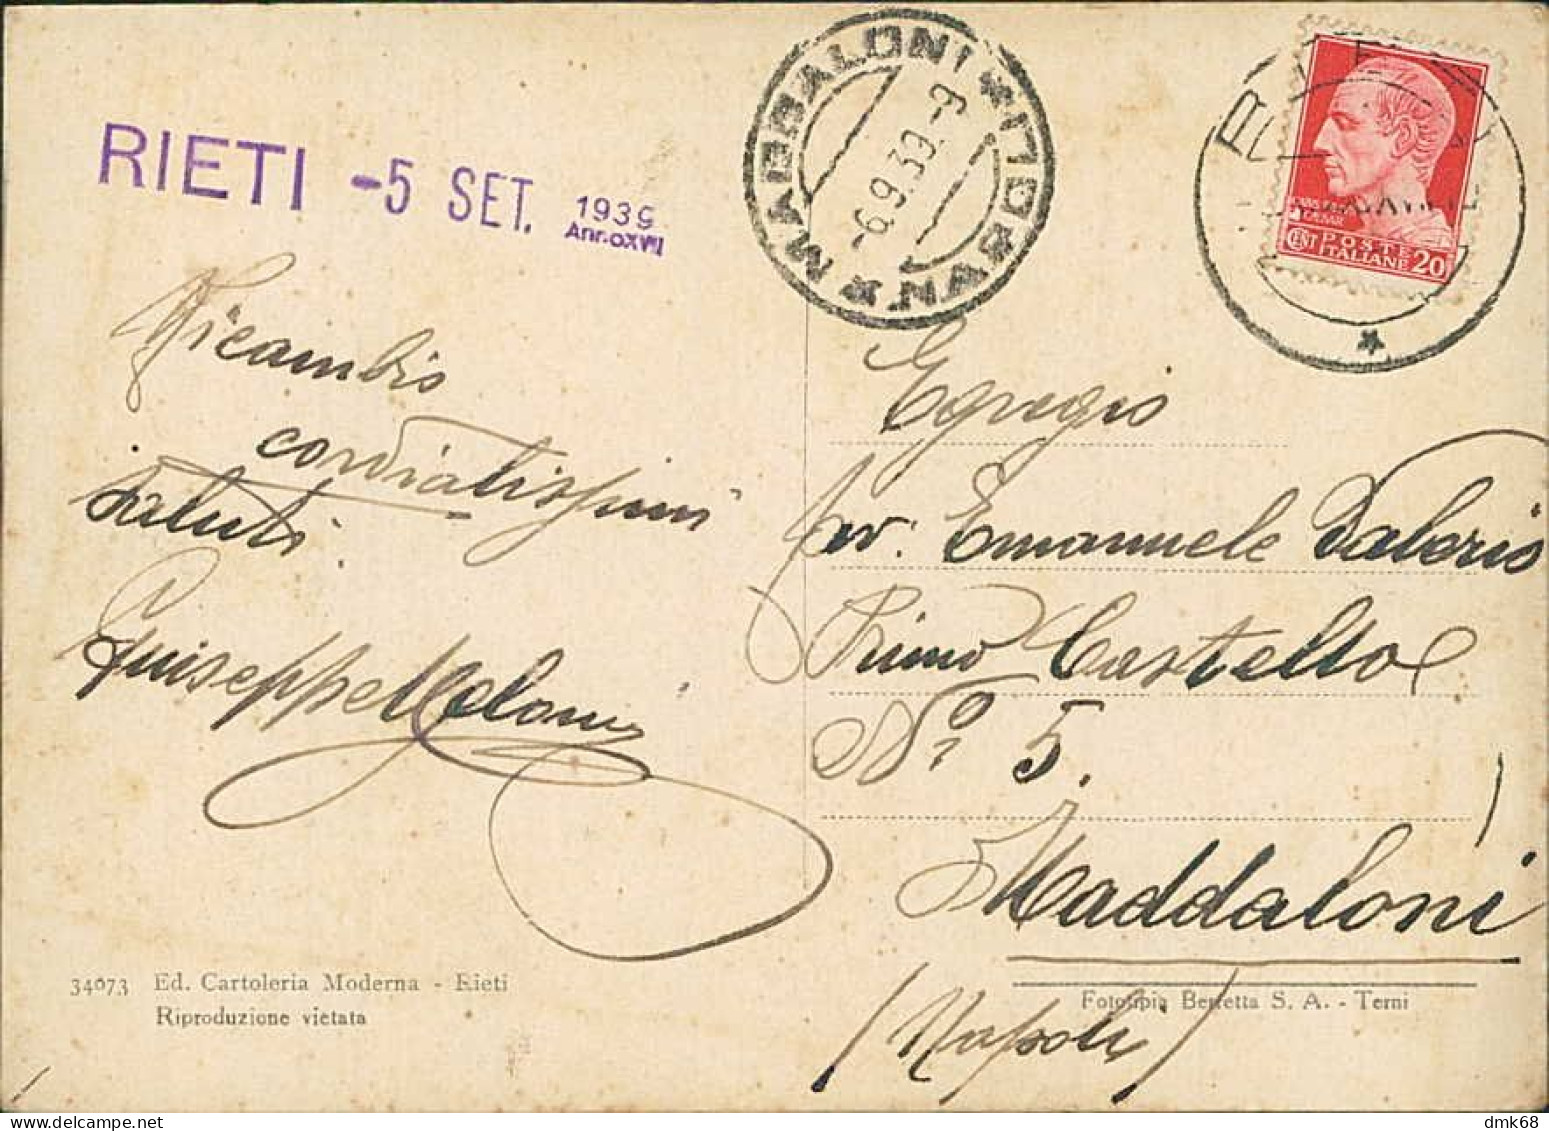 RIETI -5 SET. 1939
Anno XVII
MADDALONI * NAPOLI *
-6.9.39.-9
POSTE
ITALIANE
CENT 20
Ricambio
cordialissimi
saluti.
Giuseppe Meloni
Egregio
Emanuele
Primo Castello
N° 5.
Maddaloni
(Napoli)
34073 Ed. Cartoleria Moderna - Rieti
Riproduzione vietata
Fototipia Berretta S. A. - Terni
dmk68